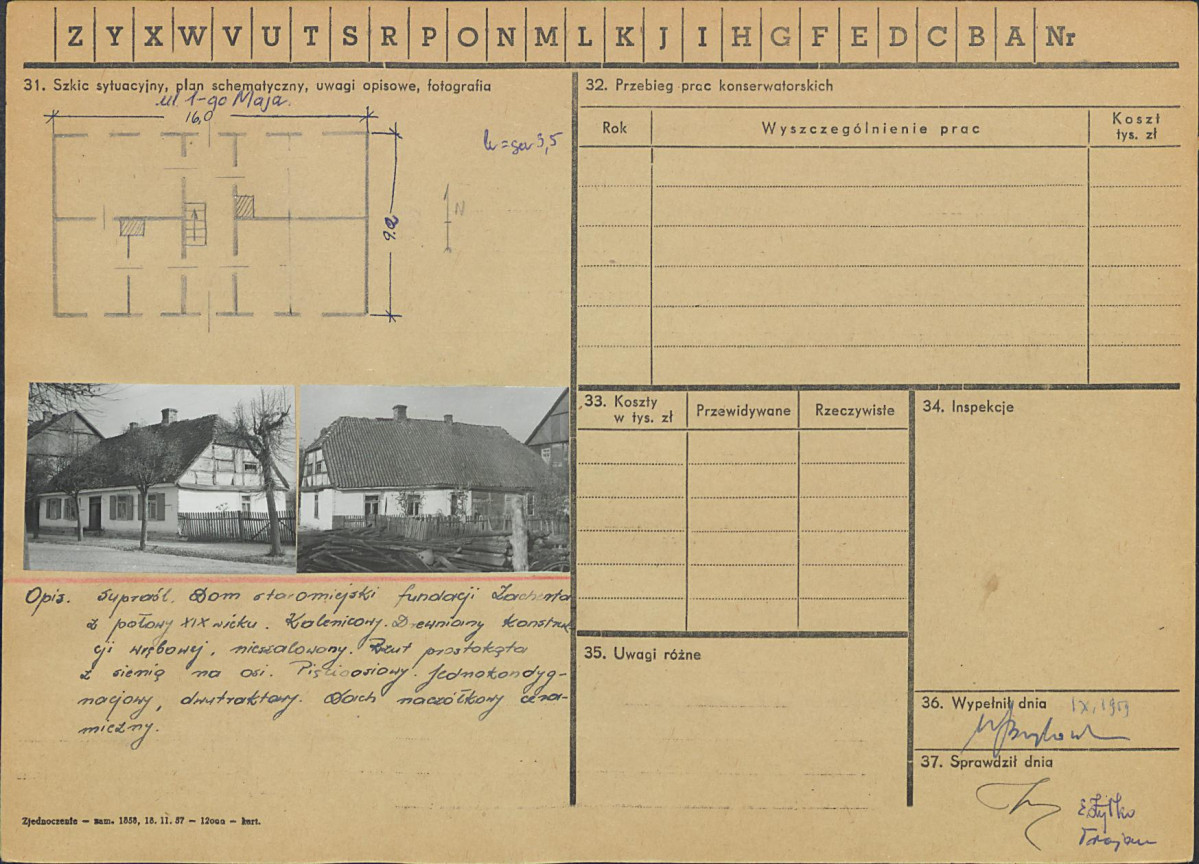 Z Y X W V U T S R P O N M L K J I H G F E D C B A Nr
31. Szkic sytuacyjny, plan schematyczny, uwagi opisowe, fotografia
ul. 1-go Maja.
16,0
9.0
N
32. Przebieg prac konserwatorskich
Rok
Wyszczególnienie prac
Koszt
tys. zł
33. Koszty
w tys. zł
Przewidywane
Rzeczywiste
34. Inspekcje
Opis. Supraśl. Dom staromiejski fundacji Zacherta
z połowy XIX wieku. Kalenicowy. Drewniany konstruk
cji wrębowej, nieszalowany. Rzut prostokąta
z sienią na osi. Pięcioosiowy. Jednokondyg-
nacjowy, dwutraktowy. Dach naczółkowy cera-
miczny.
35. Uwagi różne
36. Wypełnił dnia IX.1959
37. Sprawdził dnia
E. Żyłko
Trojan
Zjednoczenie — zam. 1858, 18. 11. 57 — 12000 — kart.